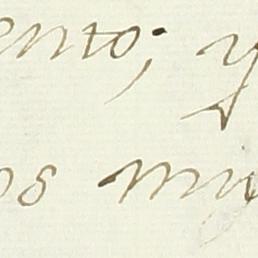 ento; y
os my